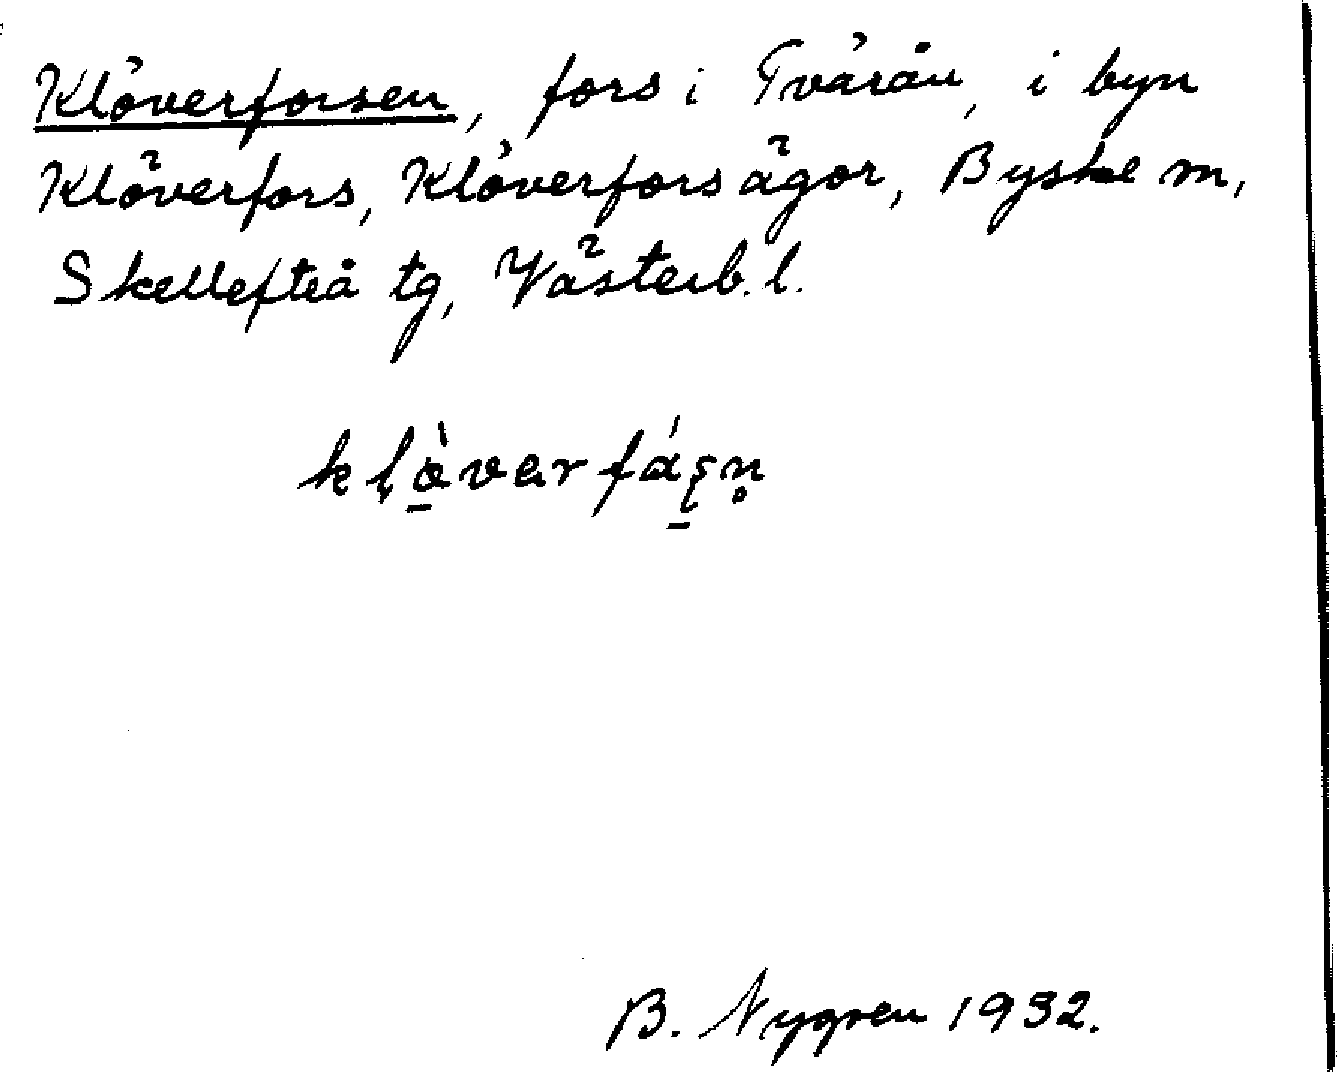 Klöverforsen, fors i Tvärån, i byn
Klöverfors, Klöverfors ägor, Byske sn,
Skellefteå tg, Västerb. l.
klö̀verfásn
B. Nygren 1932.